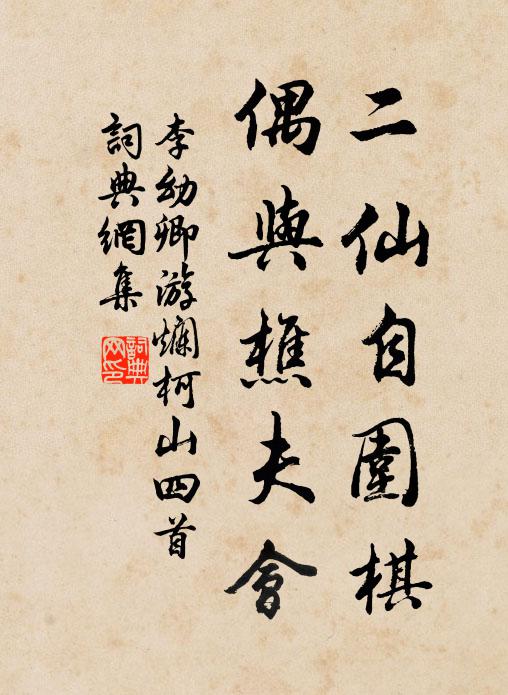 二仙自圍棋
偶與樵夫會
李幼卿游爛柯山四首
詞典網集
詞典
网印